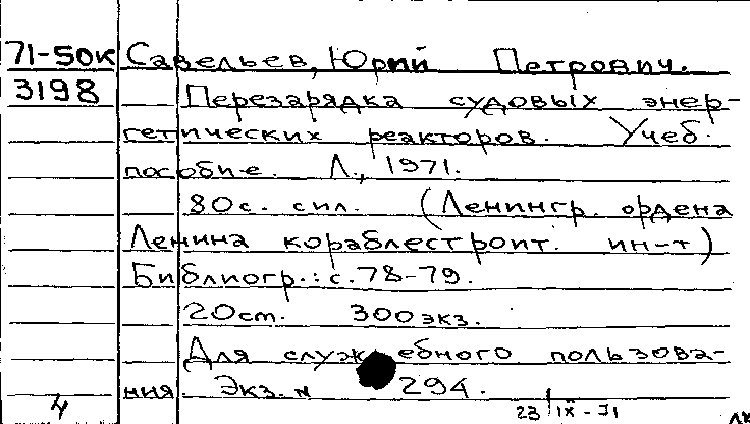 71-50к Савельев, Юрий Петрович.
3198 Перезарядка судовых энер-
гетических реакторов. Учеб.
пособие. Л., 1971.
80с. с ил. (Ленингр. ордена
Ленина кораблестроит. ин-т)
Библиогр.: с. 78-79.
20 см. 300 экз.
Для служебного пользова-
ния. Экз. N 294.
4 23/IX-71